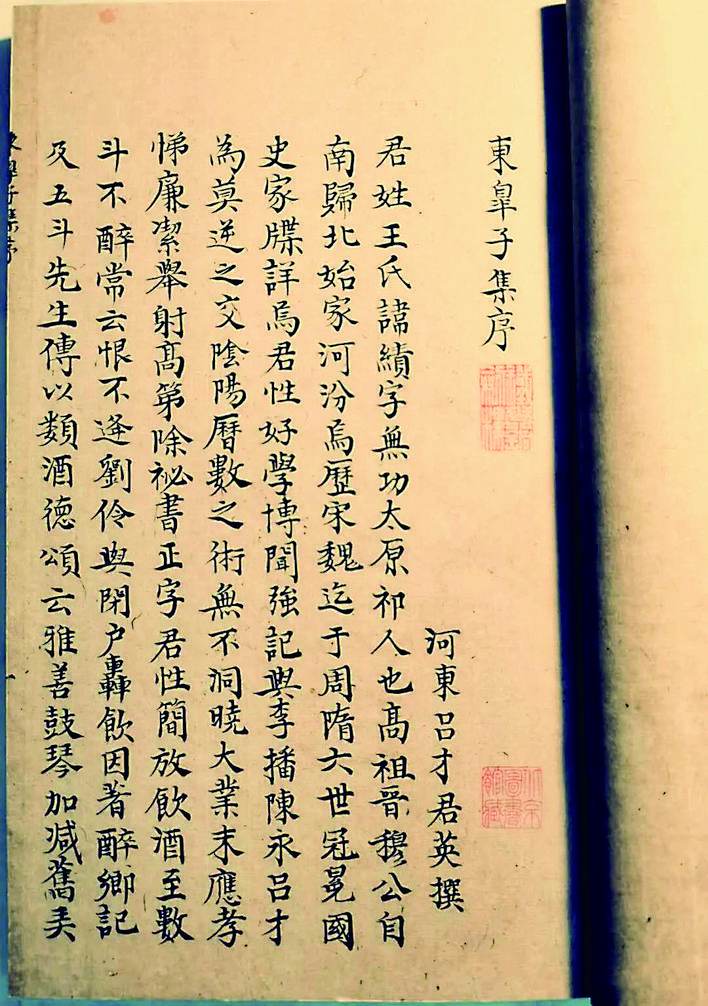 東臯子集序
河東呂才君英撰
君姓王氏諱績字無功太原祁人也髙祖晉穆公自
南歸北始家河汾焉歷宋魏迄于周隋六世冠冕國
史家牒詳焉君性好學博聞強記與李播陳永呂才
為莫逆之交陰陽曆數之術無不洞曉大業末應孝
悌廉潔舉射髙第除祕書正字君性簡放飲酒至數
斗不醉常云恨不逢劉伶與閉户轟飲因著醉鄉記
及五斗先生傳以類酒德頌云雅善鼓琴加减舊弄